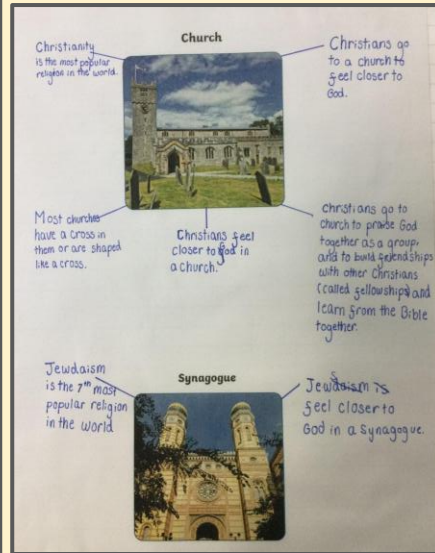 Church
Christianity
is the most popular
religion in the world.
Christians go
to a church to
feel closer to
God.
Most churches
have a cross in
them or are shaped
like a cross.
Christians feel
closer to God in
a church.
Christians go to
church to praise God
together as a group,
and to build friendships
with other Christians
(called fellowships) and
learn from the Bible
together.
Synagogue
Jewdaism
is the 7th most
popular religion
in the world
Jews
feel closer to
God in a Synagogue.